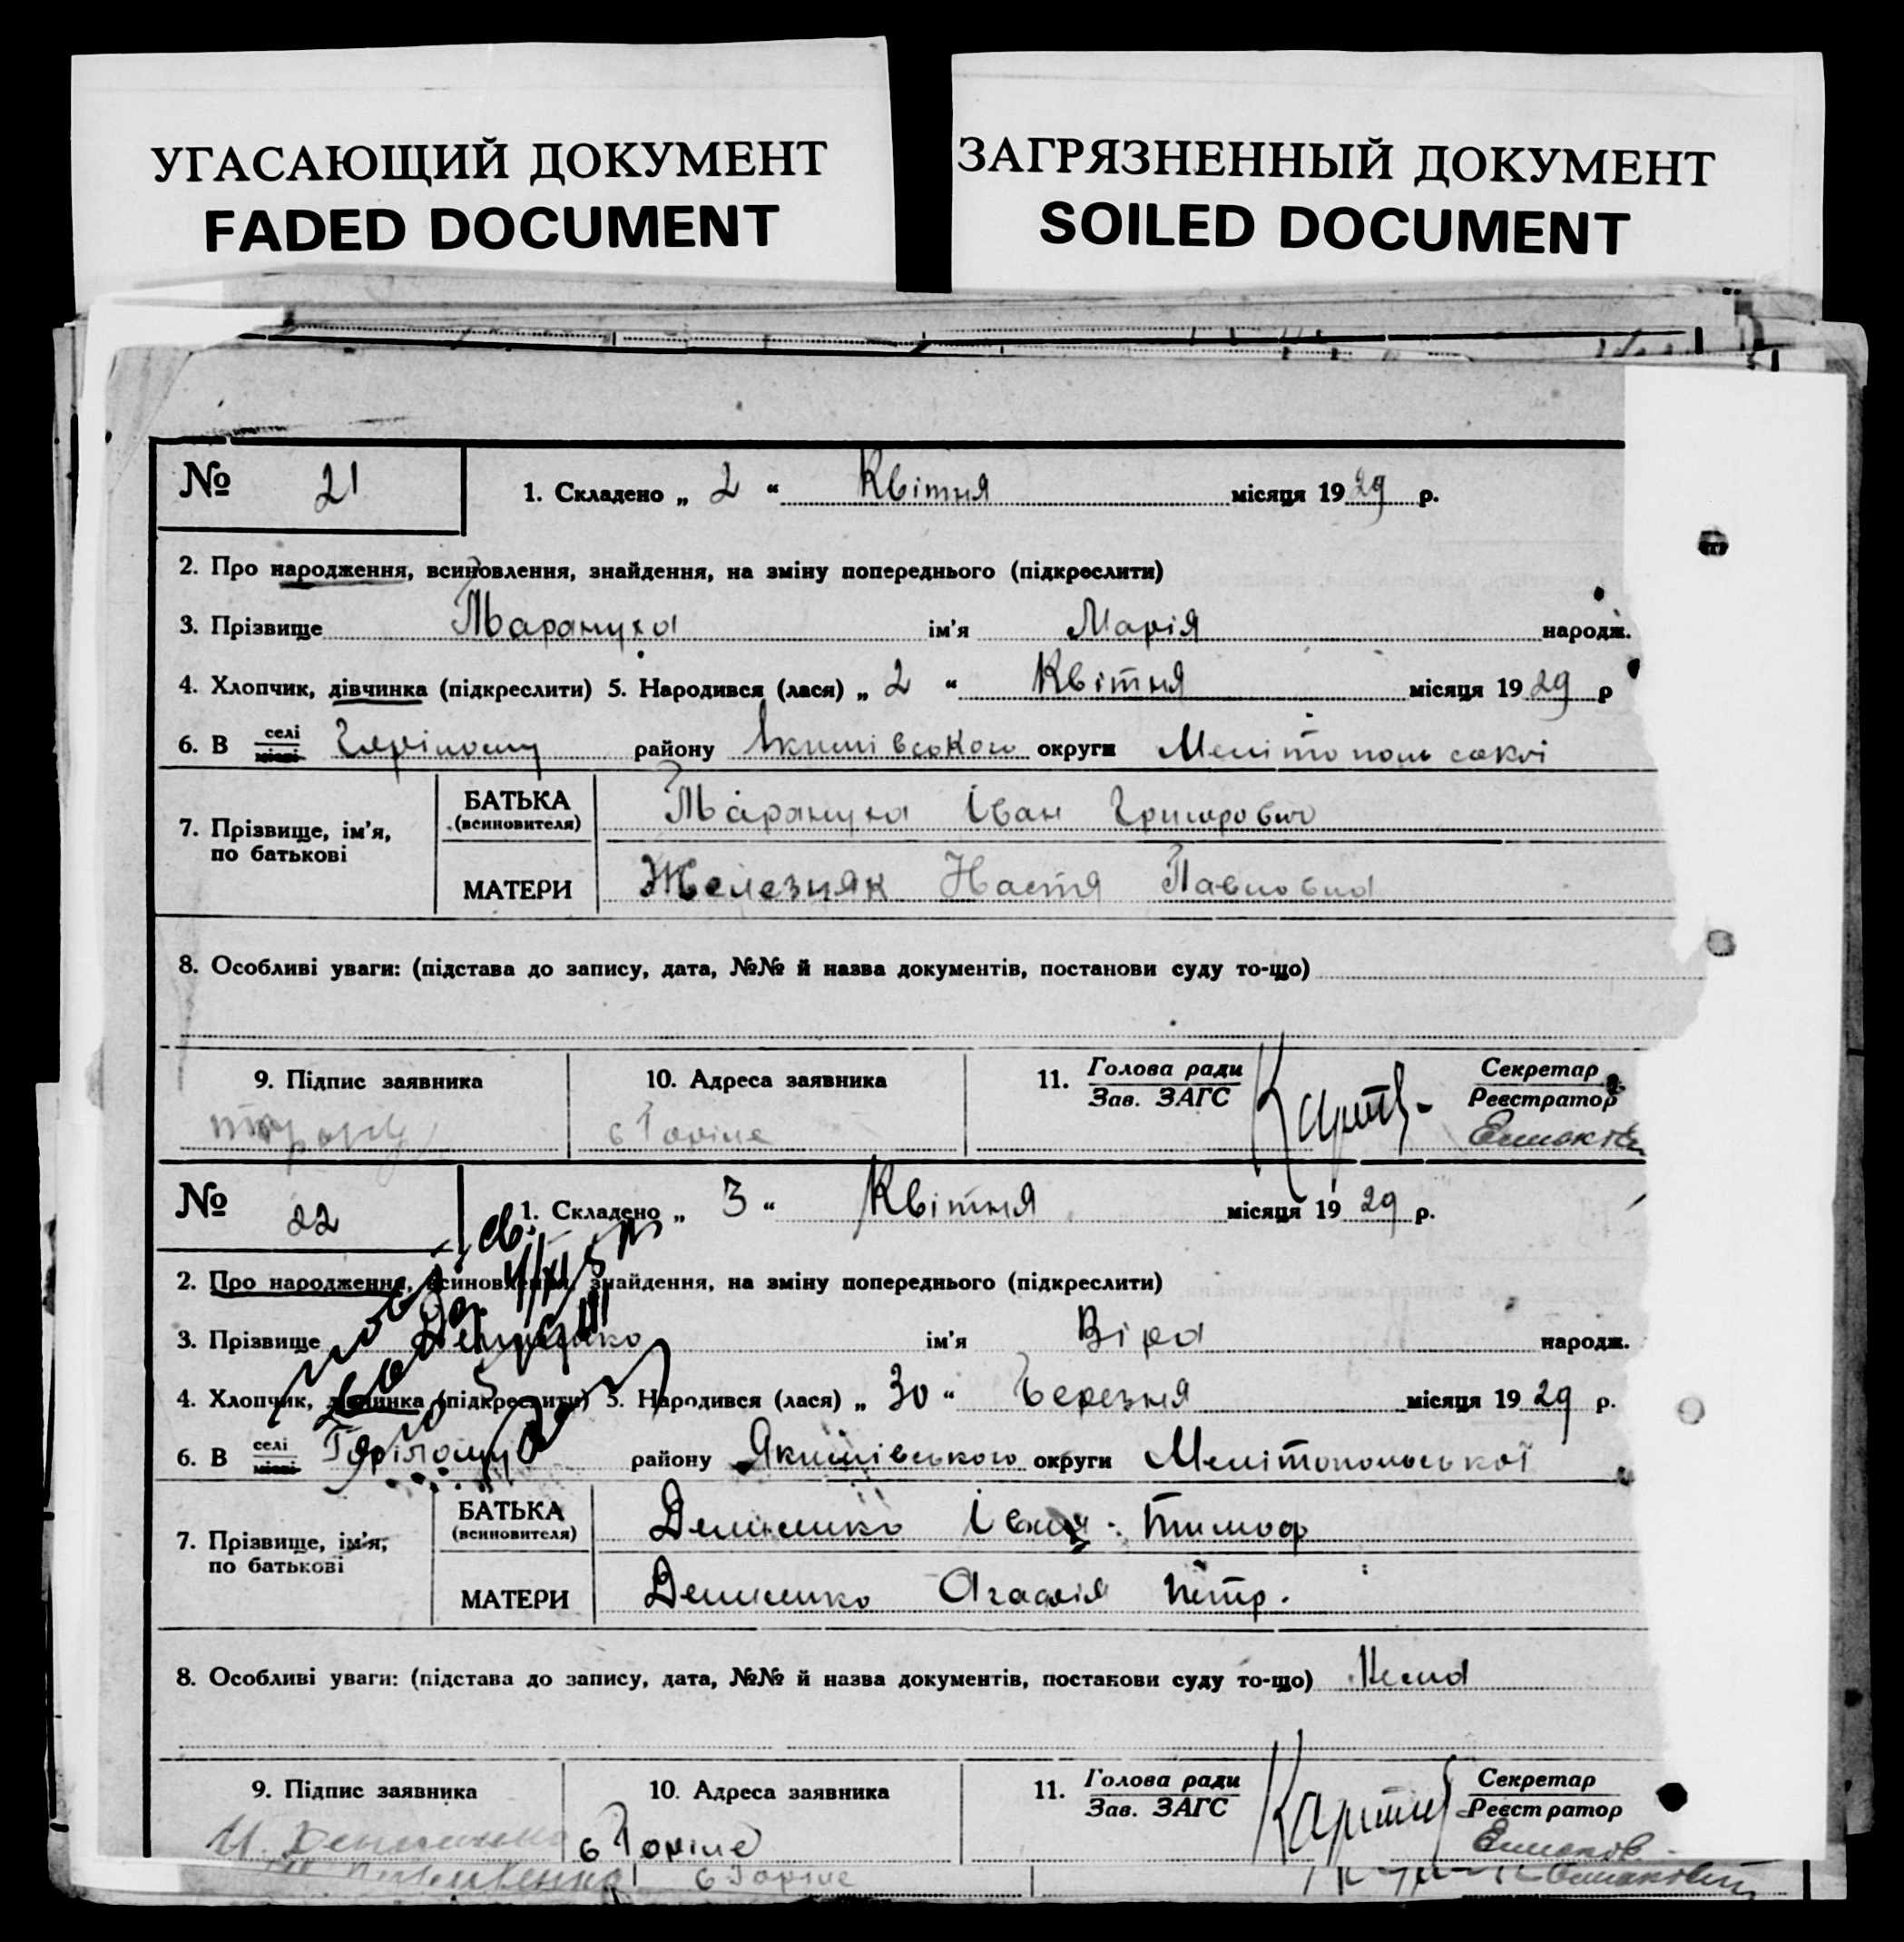 УГАСАЮЩИЙ ДОКУМЕНТ
FADED DOCUMENT
ЗАГРЯЗНЕННЫЙ ДОКУМЕНТ
SOILED DOCUMENT
№ 21
1. Складено „ 2 “ Квітня місяця 1929 р.
2. Про народження, всиновлення, знайдення, на зміну попереднього (підкреслити)
3. Прізвище Тарануха ім'я Марія народж.
4. Хлопчик, дівчинка (підкреслити) 5. Народився (лася) „ 2 “ Квітня місяця 1929 р
6. В селі місті району Якимівського округи Мелітопольської
7. Прізвище, ім'я, по батькові
БАТЬКА (всиновителя) Тарануха Іван Григорович
МАТЕРИ Железняк Настя Павловна
8. Особливі уваги: (підстава до запису, дата, №№ й назва документів, постанови суду то-що)
9. Підпис заявника
10. Адреса заявника
с Горіле
11. Голова ради Зав. ЗАГС
Секретар Реєстратор
№ 22
1. Складено „ 3 “ Квітня місяця 1929 р.
2. Про народження, всиновлення, знайдення, на зміну попереднього (підкреслити)
3. Прізвище ім'я Віра народж.
4. Хлопчик, дівчинка (підкреслити) 5. Народився (лася) „ 30 “ Березня місяця 1929 р.
6. В селі місті Горілому району Якимівського округи Мелітопольської
7. Прізвище, ім'я, по батькові
БАТЬКА (всиновителя) Тимоф
МАТЕРИ Агафія Петр.
8. Особливі уваги: (підстава до запису, дата, №№ й назва документів, постанови суду то-що) Нема
9. Підпис заявника
10. Адреса заявника
с Горіле
11. Голова ради Зав. ЗАГС
Секретар Реєстратор
с Горіле